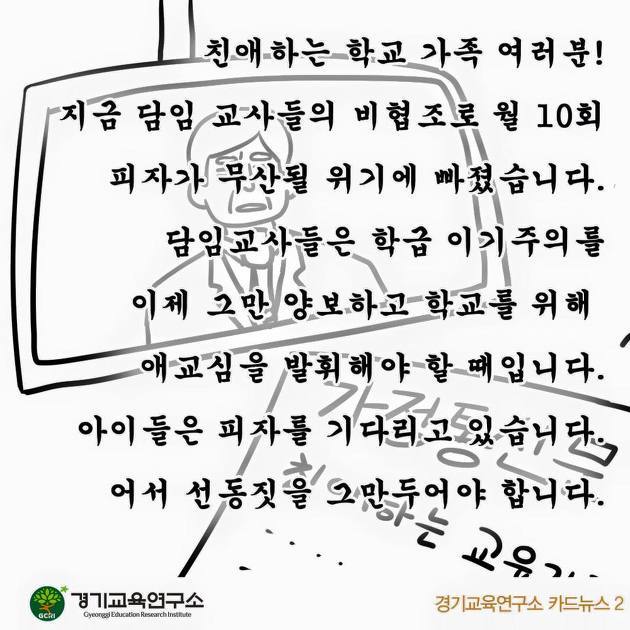 친애하는 학교 가족 여러분!
지금 담임 교사들의 비협조로 월 10회
피자가 무산될 위기에 빠졌습니다.
담임교사들은 학급 이기주의를
이제 그만 양보하고 학교를 위해
애교심을 발휘해야 할 때입니다.
가정통신문
아이들은 피자를 기다리고 있습니다.
친애하는 교육
어서 선동짓을 그만두어야 합니다.
GERI
경기교육연구소
Gyeonggi Education Research Institute
경기교육연구소 카드뉴스 2